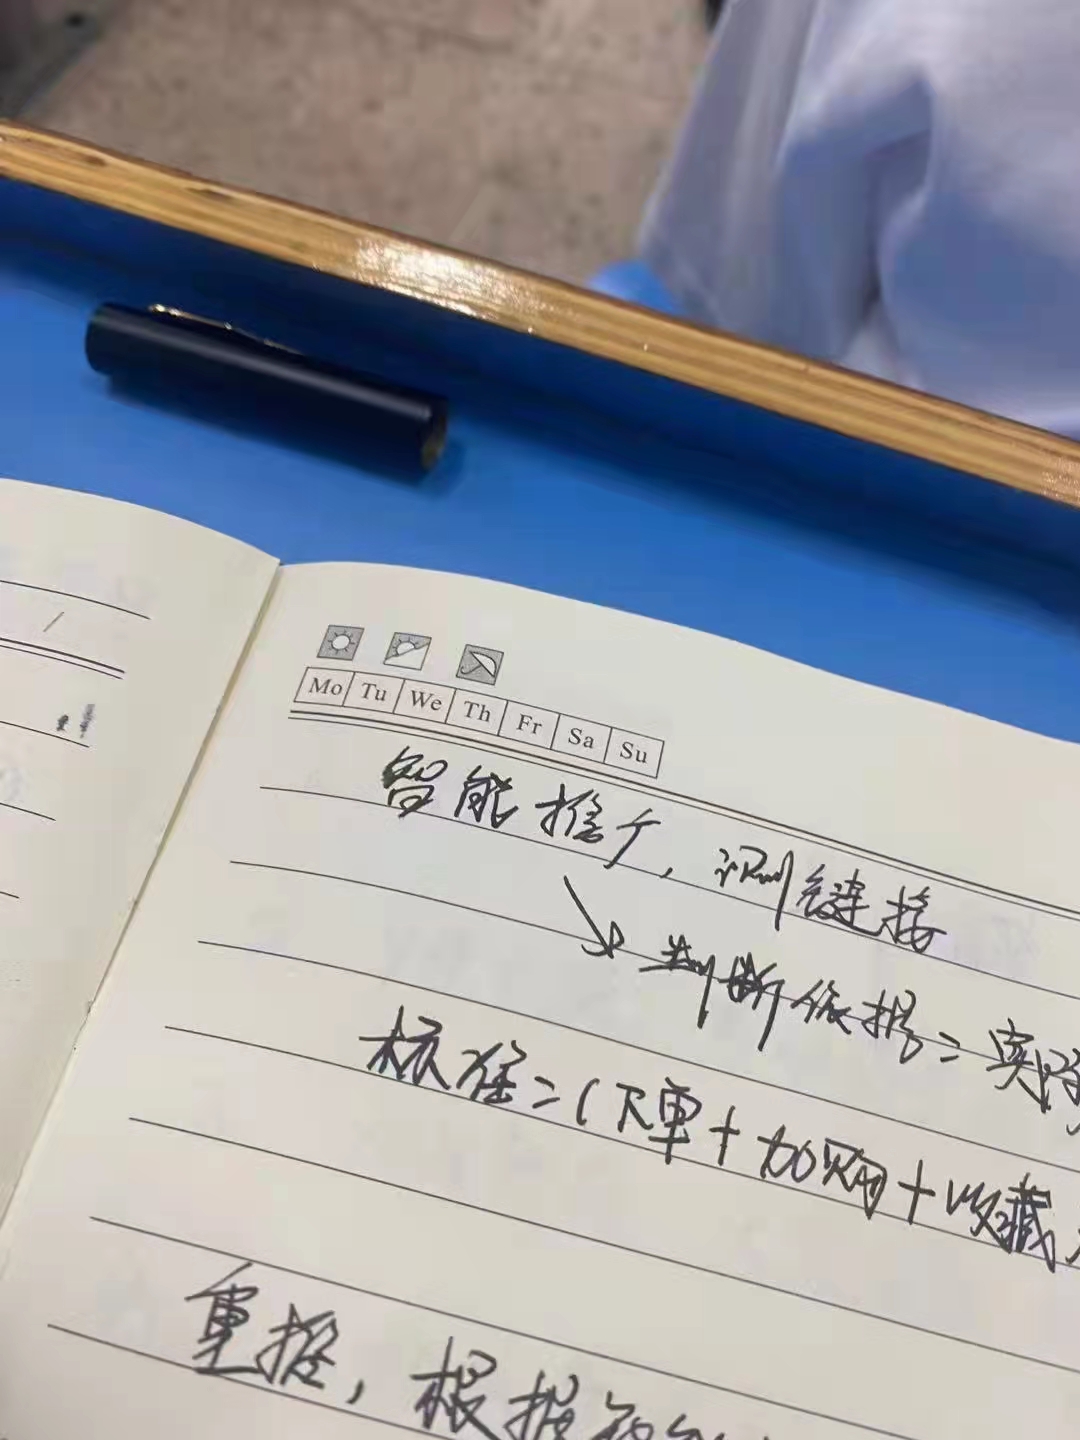 Mo Tu We Th Fr Sa Su
智能推广，测链接
判断依据：实际
标准：(下单+加购+收藏
重搭，根据智能